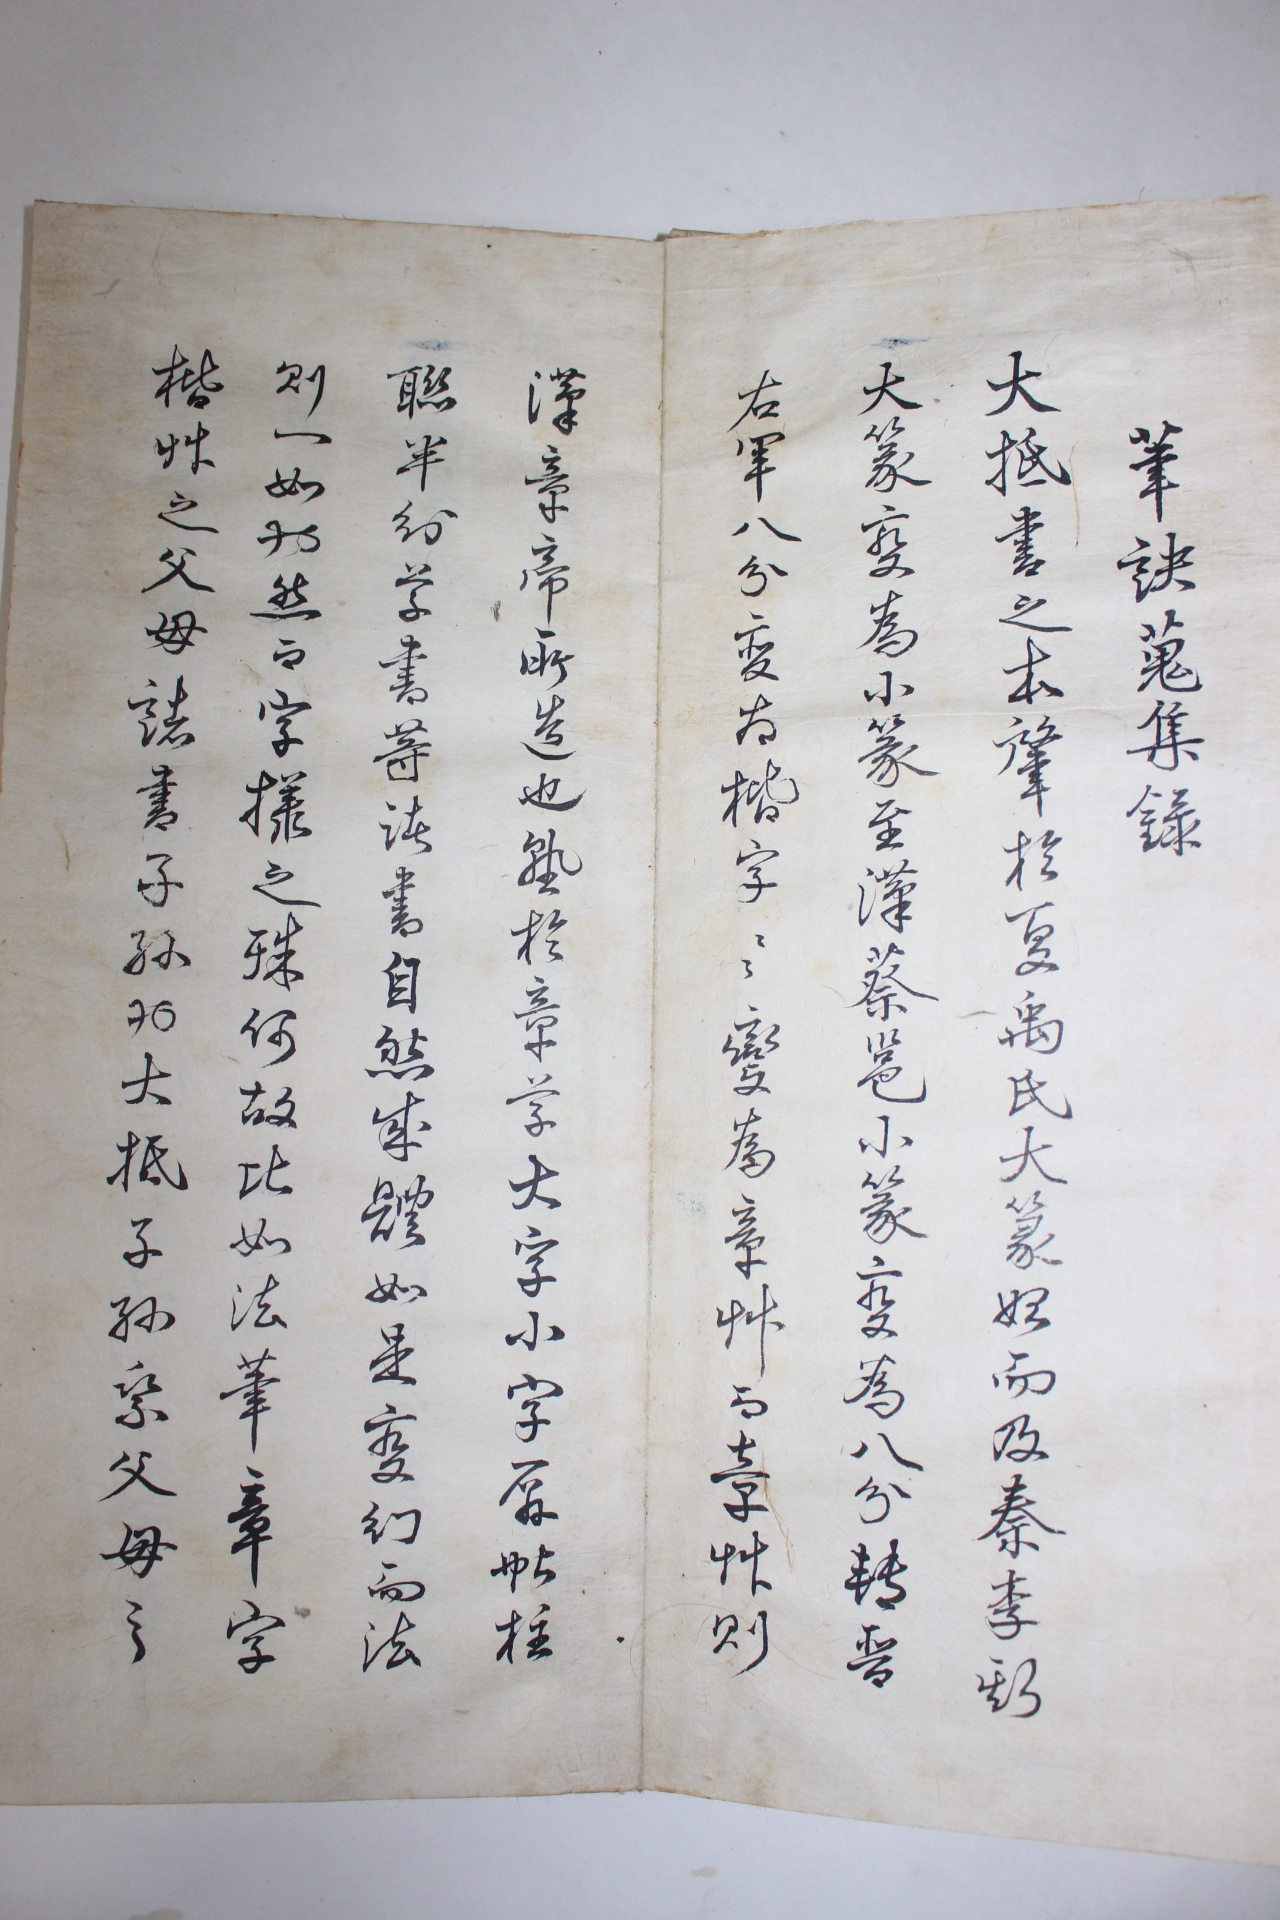 筆訣蒐集錄
大抵書之本肇於夏禹氏大篆始而及秦李斯
大篆变為小篆至漢蔡邕小篆变為八分轉晉
右軍八分变為楷字〻〻變為章艸而章艸則
漢章帝所造也塾於章学大字小字屛帖柱
聯半行学書等諸書自然成體如是变幻而法
則一如也然而字㨾之殊何故比如法筆章字
楷艸之父母諸書子孫也大抵子孫案父母之